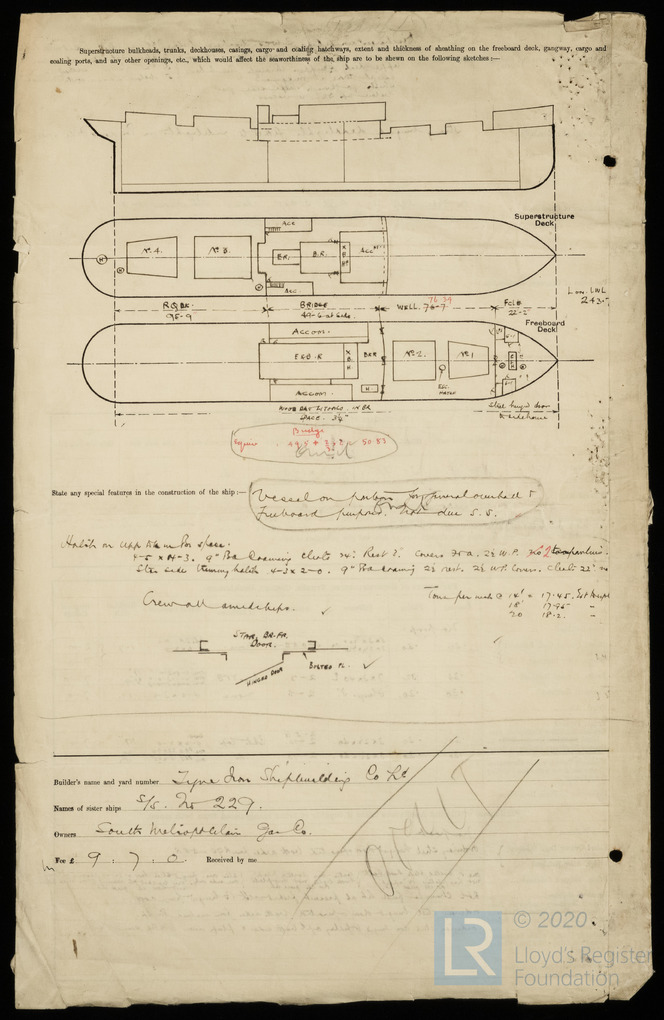 Superstructure bulkheads, trunks, deckhouses, casings, cargo and coaling hatchways, extent and thickness of sheathing on the freeboard deck, gangway, cargo and
coaling ports, and any other openings, etc., which would affect the seaworthiness of the ship are to be shewn on the following sketches :—
Superstructure
Deck
ACC
No. 4.
No. 3.
E.R.
B.R.
ACC
ACC.
Lon. LWL
243.
R.Q.DK.
95-9
BRIDGE
49-6 at side
WELL.
76.59
76-7
FCLE
22-2
Freeboard
Deck
ACCOM.
E & B.R
BKR
No. 2.
No. 1
H
ESC.
HATCH
ACCOM.
SPACE. 3¼"
Steel hinged door
Bridge
49.5 +
50.83
State any special features in the construction of the ship :—
Vessel on
for general overhaul &
Freeboard purposes. Not due S.S.
Hatch on upp dk in Bkr space.
4-3. 9" coaming cleats 24" Rest 2". Covers
2½ W.P. No
Side trimming hatch 4-3 x 2-0. 9" coaming 2½ rest. 2½ W.P. Covers. Cleats 22"
Crew all amidships.
Tons per inch @ 14' = 17.45.
18' 17.95 "
20 18.2. "
STAR. BR. FR.
DOOR.
HINGED DOOR
BOLTED PL.
Builder's name and yard number Tyne Iron Shipbuilding Co Ld
Names of sister ships S/S. No 229.
Owners South Metropolitan Gas Co.
Fee £ 9 : 7 : 0. Received by me
© 2020
LR
Lloyd's Register
Foundation